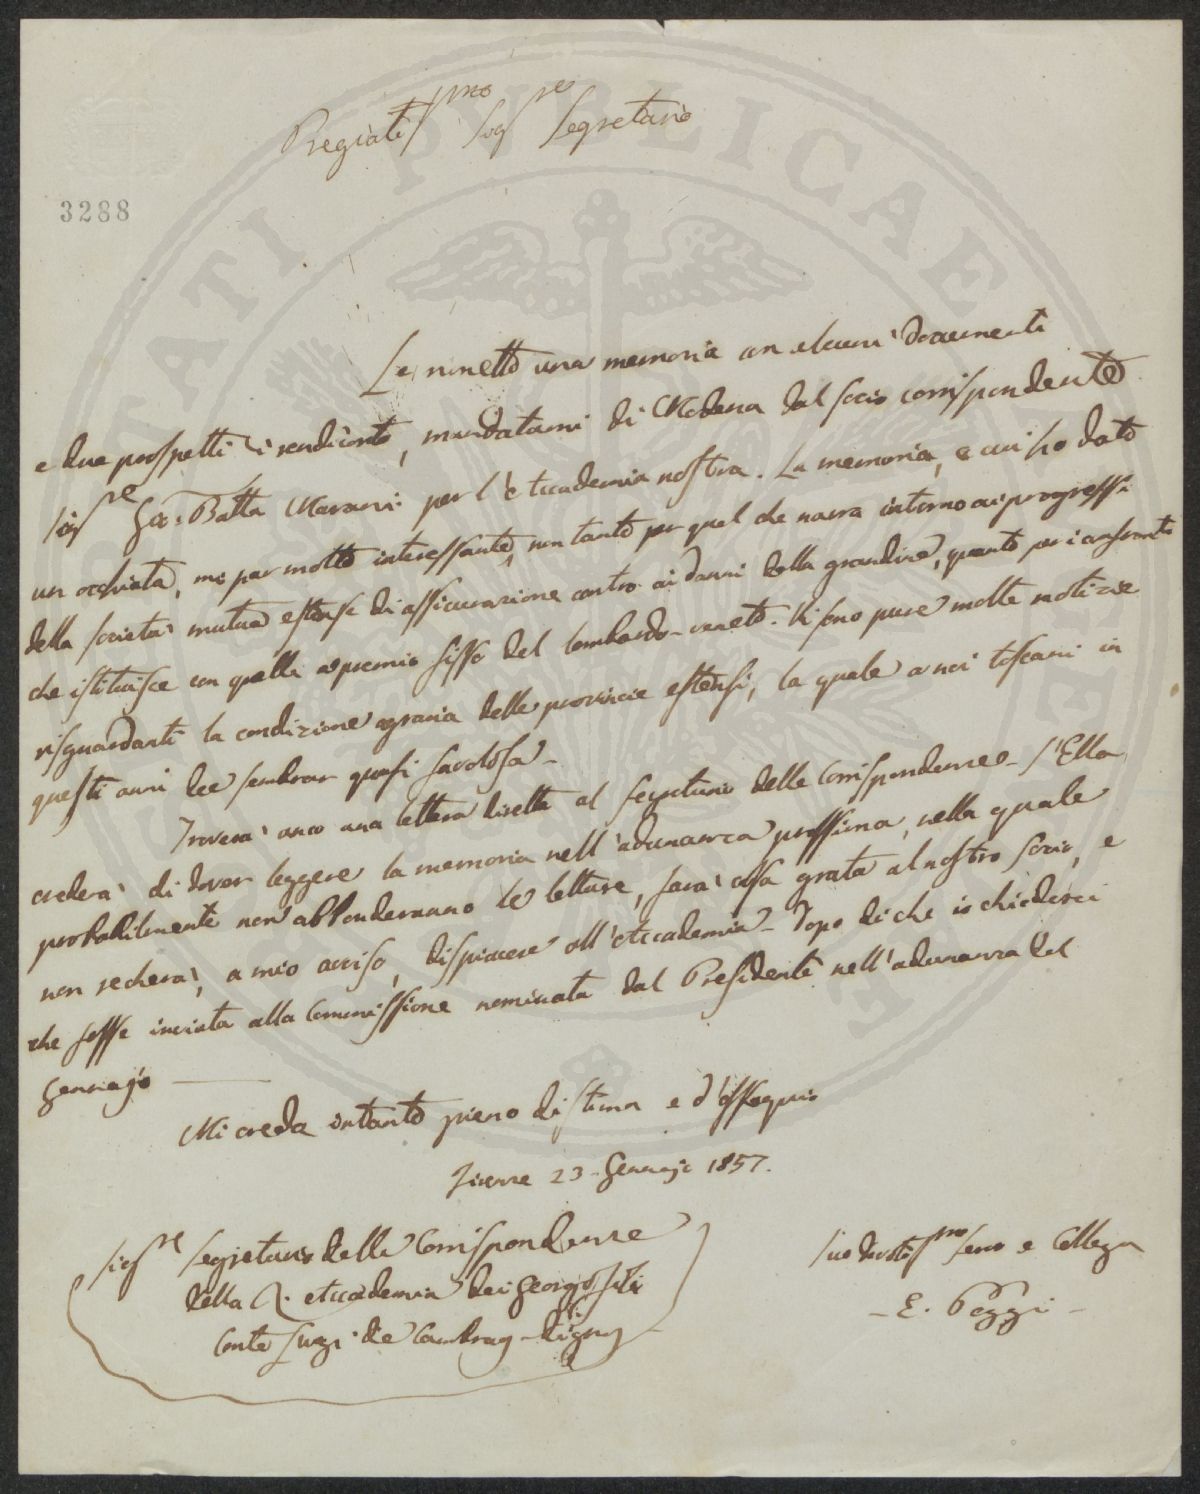 Pregiatissmo Sigre Segretario
3288
Le rimetto una memoria con alcuni documenti
e due prospetti i rendiconto, mandatami di Modena dal socio corrispondente
Sigre Gio: Batta Marani per l'Accademia nostra. La memoria, a cui ho dato
un occhiata, me par molto interessante, non tanto per quel che narra intorno ai progressi
della società mutua estense di assicurazione contro ai danni della grandine, quanto per i confronti
che istituisce con quelli a premio fisso del lombardo-veneto. Vi sono pure molte notizie
risguardanti la condizione agraria delle provincie estensi, la quale a noi toscani in
questi anni dee sembrar quasi favolosa.
Troverà anco una lettera diretta al Segretario delle Corrispondenze. S'Ella
crederà di dover leggere la memoria nell'adunanza prossima, nella quale
probabilmente non abbonderanno le letture, sarà cosa grata al nostro socio, e
non recherà, a mio avviso, dispiacere all'Accademia. Dopo di che io chiederei
che fosse inviata alla Commissione nominata dal Presidente nell'adunanza del
Gennajo
Mi creda intanto pieno di stima e d'ossequio
Firenze 23. Gennajo 1857.
Sigre Segretario delle Corrispondenze
della R. Accademia dei Georgofili
Conte Luigi de Cambray-Digny
Suo devotissmo servo e Collega
- E. Poggi -